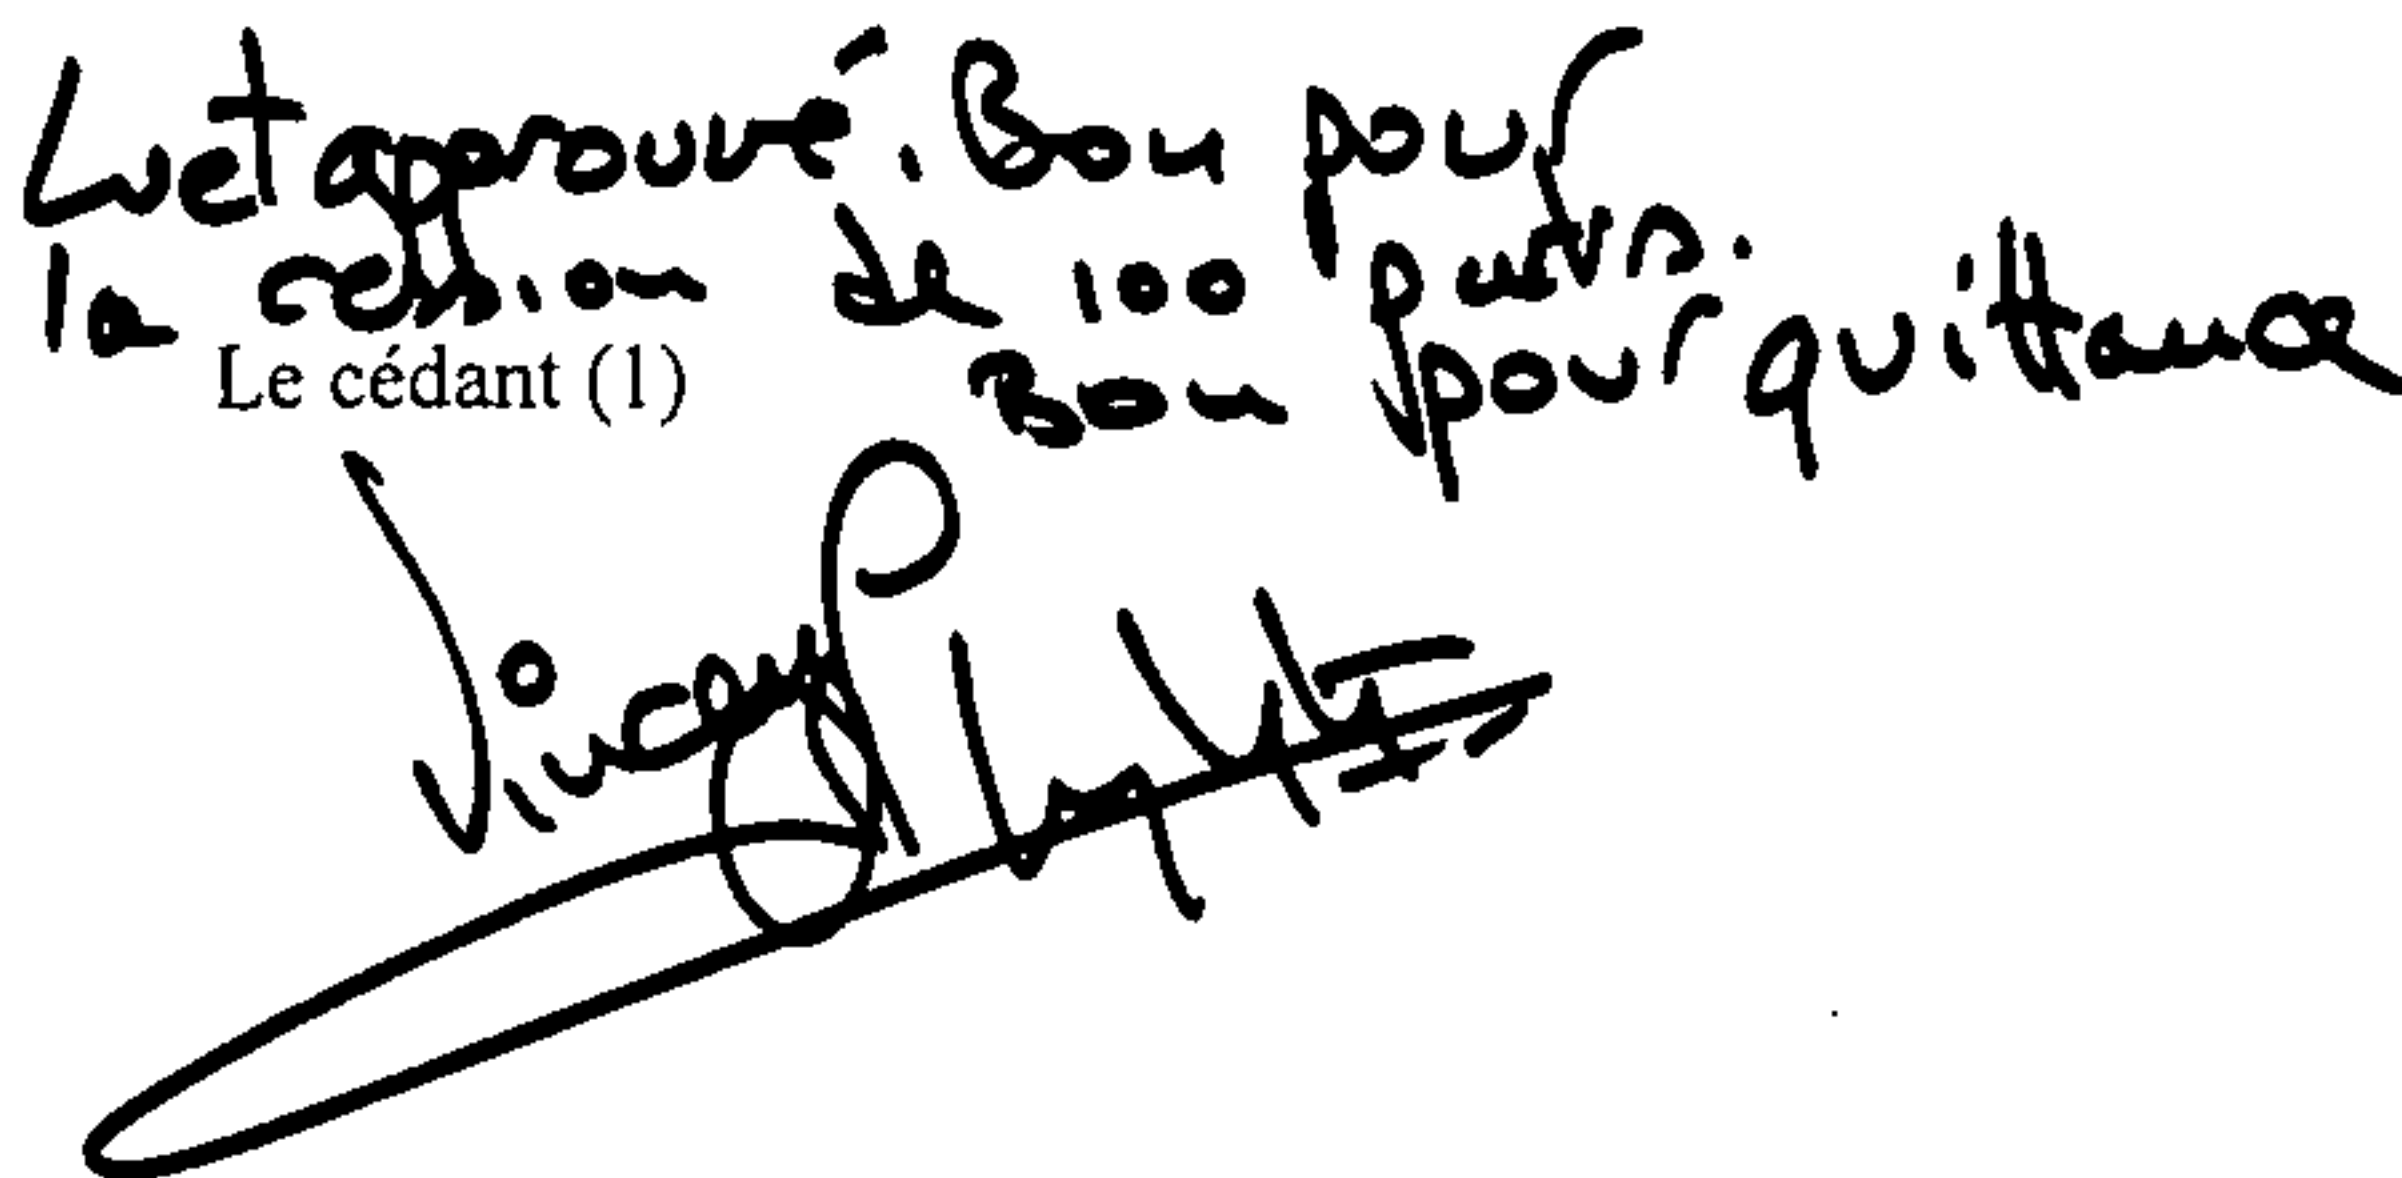 Lu et approuvé. Bon pour
la cession de 100 parts.
Bon pour quittance
Le cédant (1)